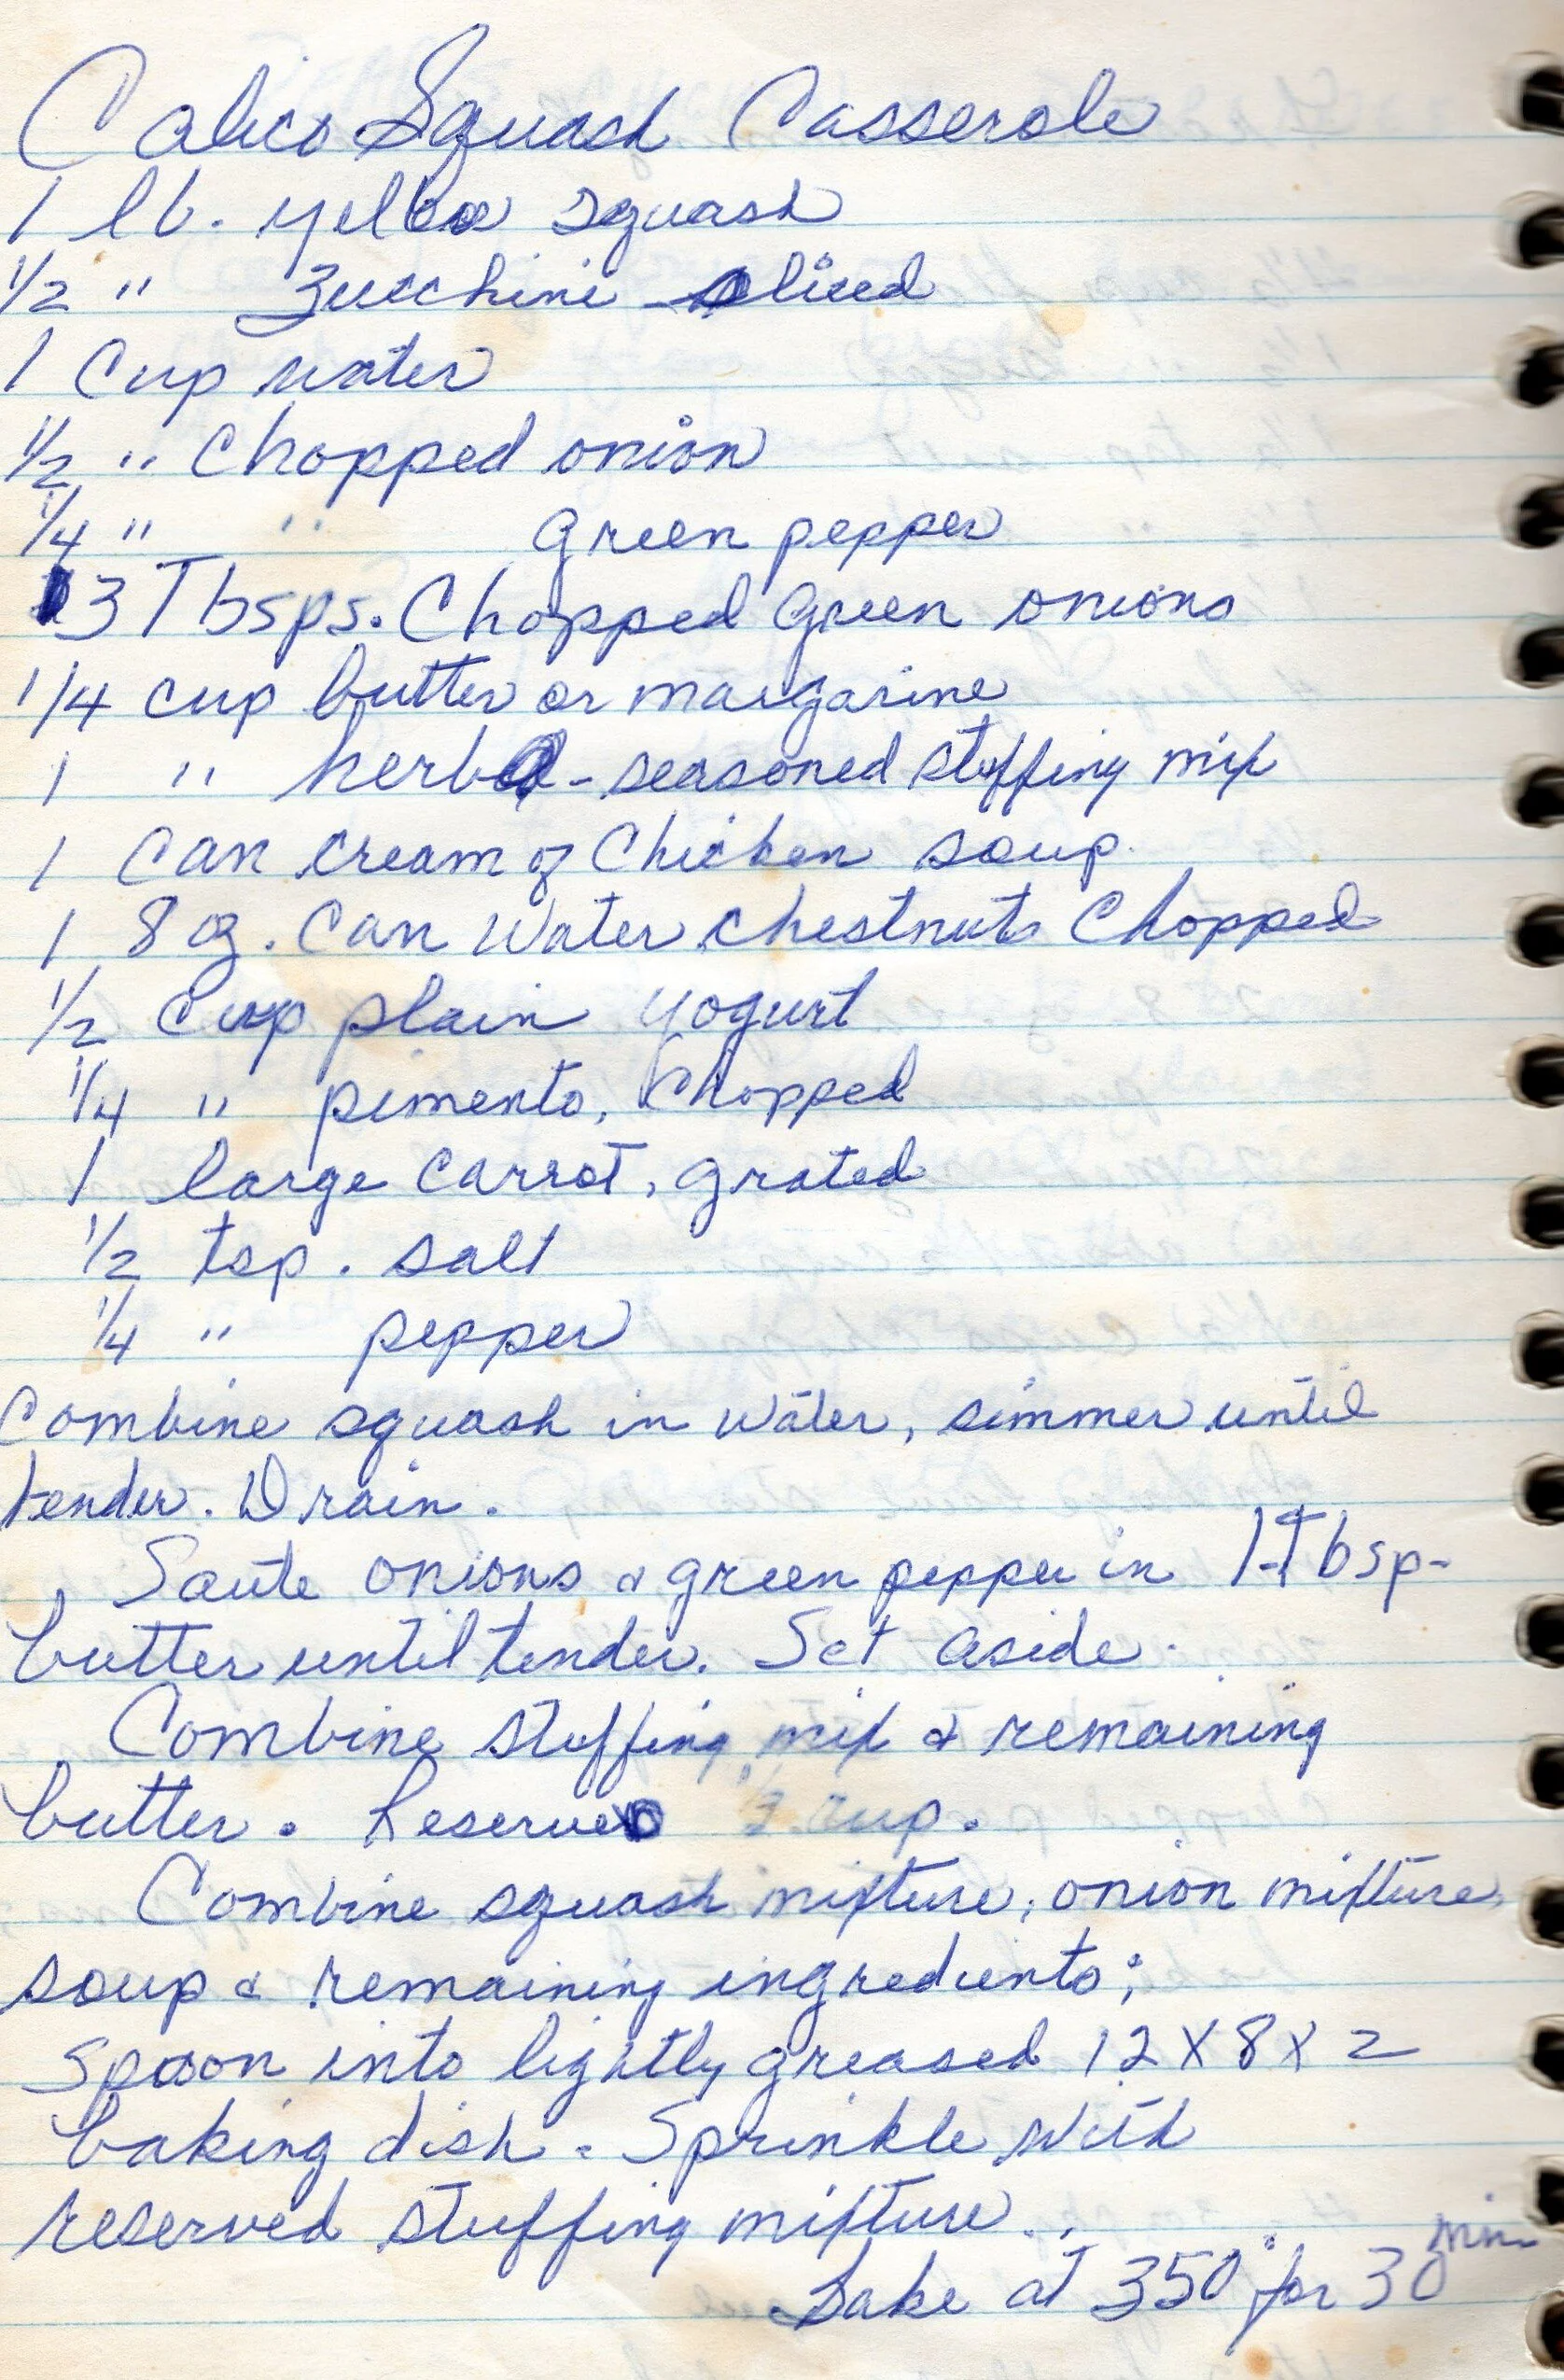 Calico Squash Casserole
1 lb. yellow squash
1/2 " Zucchini sliced
1 Cup water
1/2 " Chopped onion
1/4 " " green pepper
3 Tbsps. Chopped Green onions
1/4 cup butter or margarine
1 " herb - seasoned stuffing mix
1 Can cream of Chicken soup.
1 8 oz. Can Water chestnuts Chopped
1/2 Cup plain yogurt
1/4 " pimento, Chopped
1 large Carrot, grated
1/2 tsp. salt
1/4 " pepper
Combine squash in water, simmer until
tender. Drain.
Saute onions & green pepper in 1 Tbsp-
butter until tender. Set aside.
Combine stuffing mix & remaining
butter. Reserve 1/2 cup.
Combine squash mixture, onion mixture,
soup & remaining ingredients;
Spoon into lightly greased 12 X 8 X 2
baking dish. Sprinkle with
reserved stuffing mixture..
Bake at 350° for 30 min